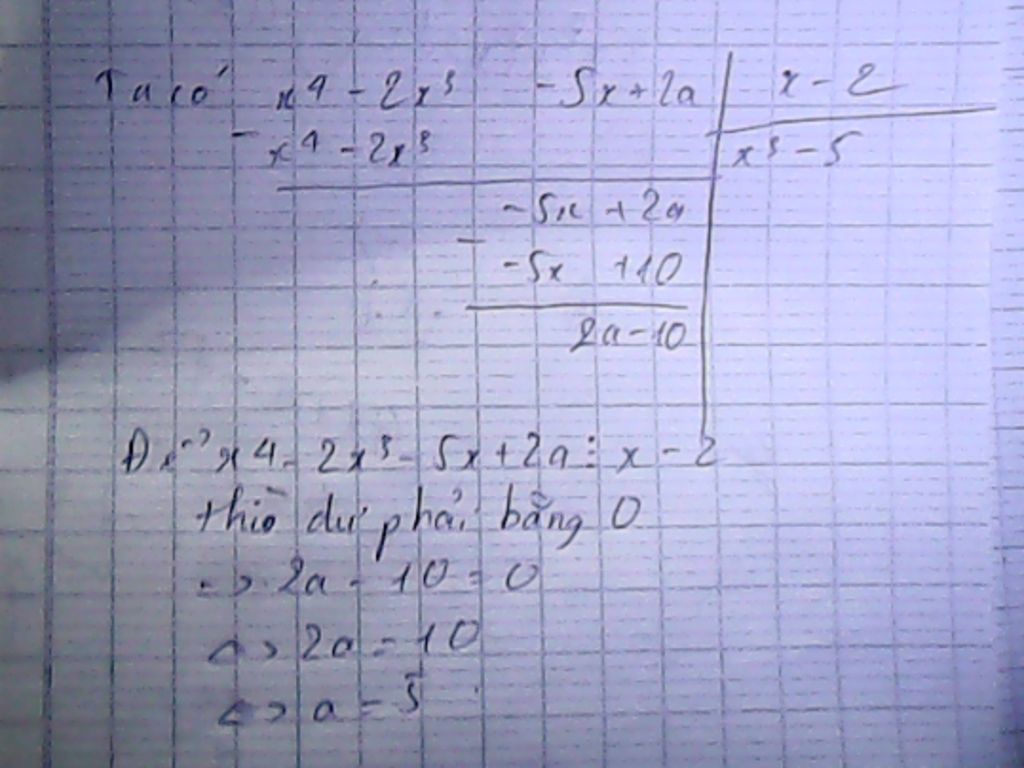 Ta có x⁴ - 2x³ - 5x + 2a | x - 2
- x⁴ - 2x³ | x³ - 5
- 5x + 2a
- - 5x + 10
2a - 10
x⁴ - 2x³ - 5x + 2a ⋮ x - 2
thì dư phải bằng 0
=> 2a - 10 = 0
<=> 2a = 10
<=> a = 5